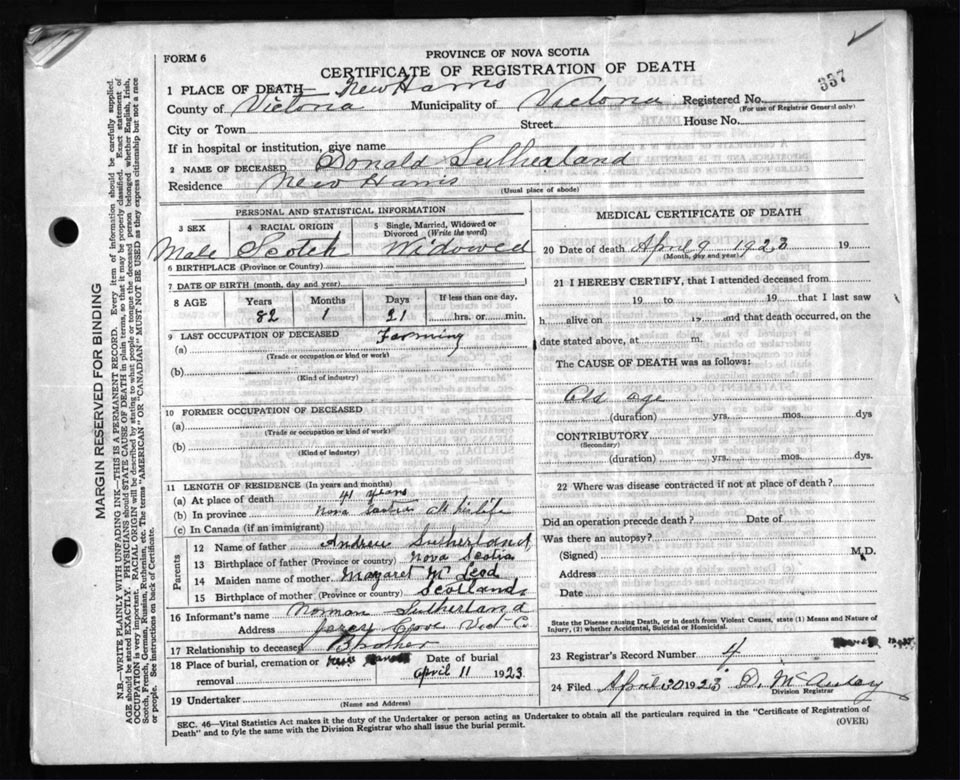 337
FORM 6
PROVINCE OF NOVA SCOTIA
CERTIFICATE OF REGISTRATION OF DEATH
1 PLACE OF DEATH— New Harris
County of Victoria Municipality of Victoria Registered No.
(For use of Registrar General only)
City or Town Street House No.
If in hospital or institution, give name
2 NAME OF DECEASED Donald Sutherland
Residence New Harris
(Usual place of abode)
PERSONAL AND STATISTICAL INFORMATION
3 SEX 4 RACIAL ORIGIN 5 Single, Married, Widowed or Divorced (Write the word)
Male Scotch Widowed
6 BIRTHPLACE (Province or Country)
7 DATE OF BIRTH (month, day and year)
8 AGE Years Months Days If less than one day,
82 1 21 hrs. or min.
9 LAST OCCUPATION OF DECEASED Farming
(a)
(Trade or occupation or kind or work)
(b)
(Kind of industry)
10 FORMER OCCUPATION OF DECEASED
(a)
(Trade or occupation or kind or work)
(b)
(Kind of industry)
11 LENGTH OF RESIDENCE (In years and months)
(a) At place of death 41 years
(b) In province Nova Scotia all his life
(c) In Canada (if an immigrant)
Parents
12 Name of father Andrew Sutherland
13 Birthplace of father (Province or country) Nova Scotia
14 Maiden name of mother Margaret McLeod
15 Birthplace of mother (Province or country) Scotland
16 Informant's name Norman Sutherland
Address Jersey Cove Vict Co
17 Relationship to deceased Brother
18 Place of burial, cremation or removal Date of burial
April 11 1923
19 Undertaker
(Name and Address)
MEDICAL CERTIFICATE OF DEATH
20 Date of death April 9 1923 19
(Month, day and year)
21 I HEREBY CERTIFY, that I attended deceased from
19 to 19 that I last saw
h alive on 19 and that death occurred, on
date stated above, at m.
The CAUSE OF DEATH was as follows:
Old age
(duration) yrs. mos. dys
CONTRIBUTORY
(Secondary)
(duration) yrs. mos. dys.
22 Where was disease contracted if not at place of death?
Did an operation precede death? Date of
Was there an autopsy?
(Signed) M.D.
Address
Date
State the Disease causing Death, or in death from Violent Causes, state (1) Means and Nature of Injury, (2) whether Accidental, Suicidal or Homicidal.
23 Registrar's Record Number 4
24 Filed April 30 1923 D. McAulay
Division Registrar
SEC. 46—Vital Statistics Act makes it the duty of the Undertaker or person acting as Undertaker to obtain all the particulars required in the "Certificate of Registration of
Death" and to fyle the same with the Division Registrar who shall issue the burial permit.
(OVER)
MARGIN RESERVED FOR BINDING
N.B.—WRITE PLAINLY WITH UNFADING INK—THIS IS A PERMANENT RECORD. Every item of information should be carefully supplied.
AGE should be stated EXACTLY. PHYSICIANS should STATE CAUSE OF DEATH in plain terms, so that it may be properly classified. Exact statement of
OCCUPATION is very important. RACIAL ORIGIN will be described by stating to what people or tongue the deceased person belonged whether English, Irish,
Scotch, French, German, Russian, Ruthenian, etc. The terms "AMERICAN" OR "CANADIAN" MUST NOT BE USED as they express citizenship but not a race
or people. See instructions on back of Certificate.